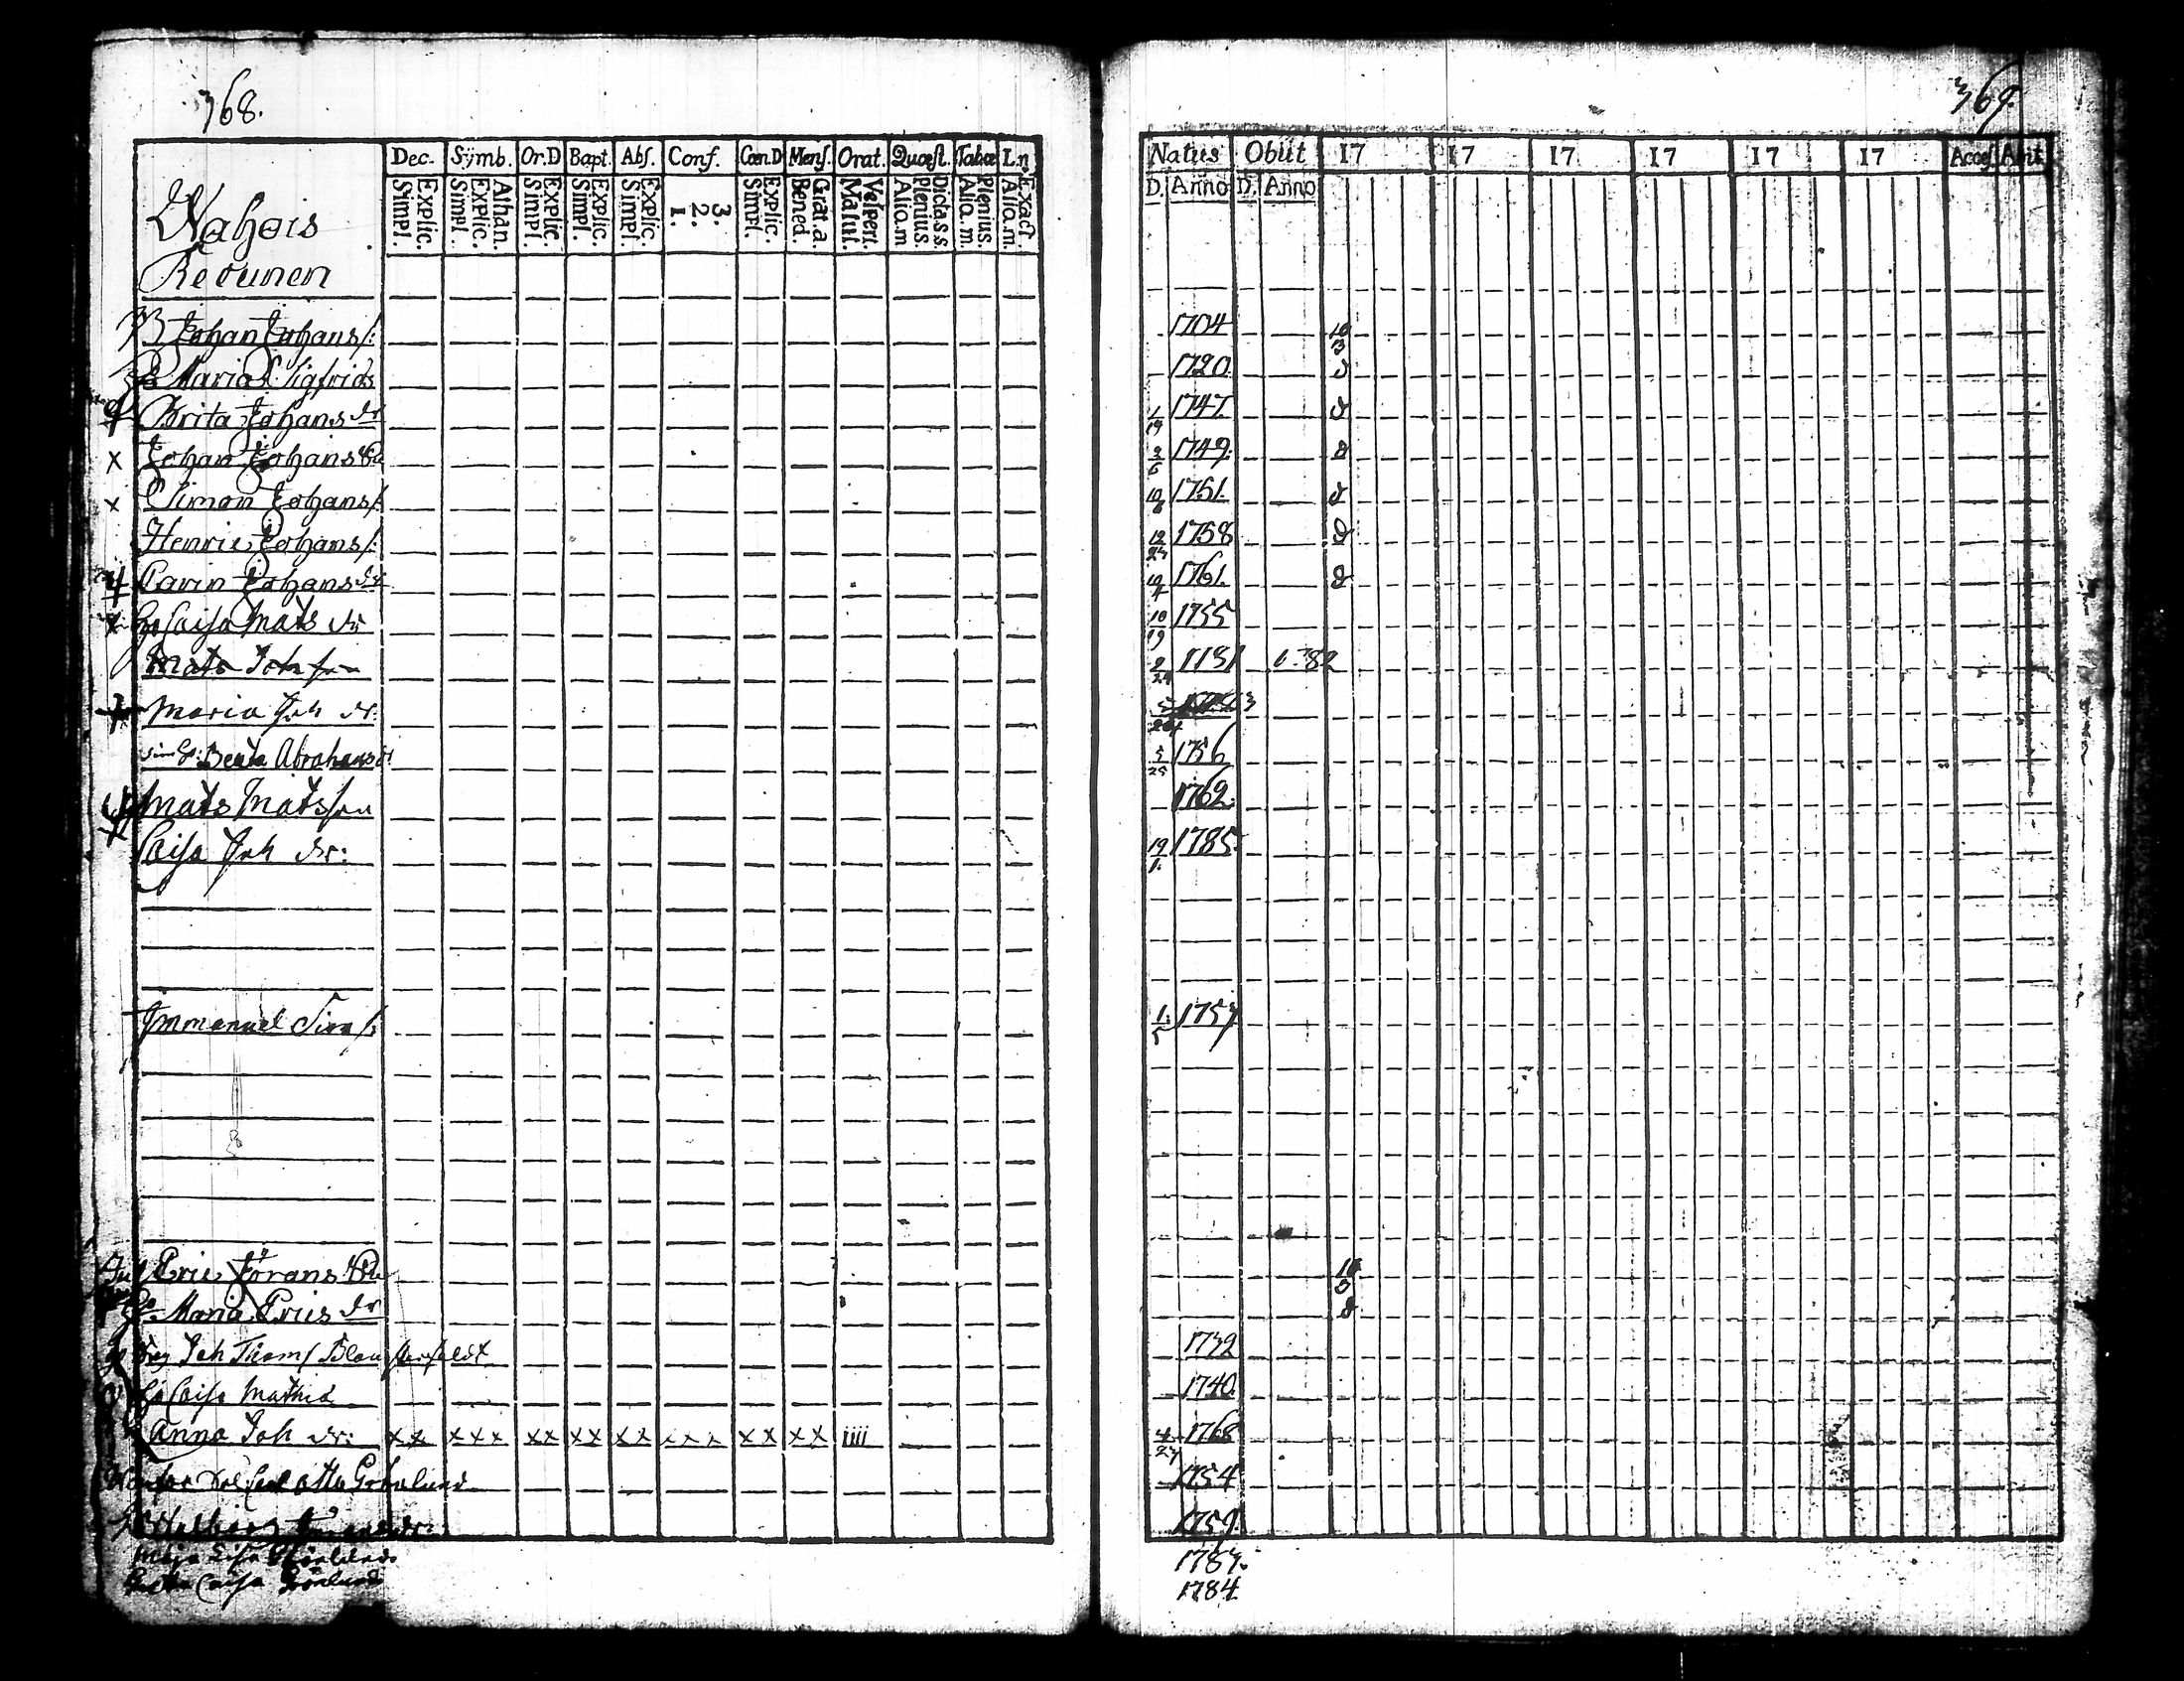 368.
Dec. Sÿmb. Or.D Bapt. Abſ. Conf. Cœn.D Menſ. Orat. Quœſt. Tabœ L.n.
Explic. Simpl. Athan. Explic. Simpl. Explic. Simpl. Explic. Simpl. Explic. Simpl. 3. 2. 1. Explic. Simpl. Grat.a. Bened. Veſpert. Matut. Dicta.s.s. Plenius. Aliq.m Plenius. Aliq.m. Exact. Aliq.m.
Wahois
Johan Johans/:
Maria Sigfrids
Brita Johans dr
x Johan Johans
x Simon Johans/:
Henric Johans/:
Carin Johans dr
Caisa Mats dr
Mats Joh son
Maria Joh dr:
Beata Abrahams dr
Mats Matsson
Caisa Joh dr:
Immanuel Sim/:
Eric Jörans
Maria Erics dr
Joh Thoms
Caisa Mathid
Anna Joh dr: xx xxx xx xx xx xxx xx xx iiii
Otto Grönlund
Maja Lisa
Caisa Grönlund
369.
Natus Obiit 17 17 17 17 17 17 Acceſ Abit
D. Anno D. Anno
1704 10 3
1720
1 19 1747
2 6 1749.
10 8 1751.
12 24 1758
10 4 1761.
10 19 1755
2 24 1781 82
5 25 1756
1762.
19 1. 1785.
1. 5 1757
10
1732
1740.
4 27 1768
1754
1759.
1787.
1784